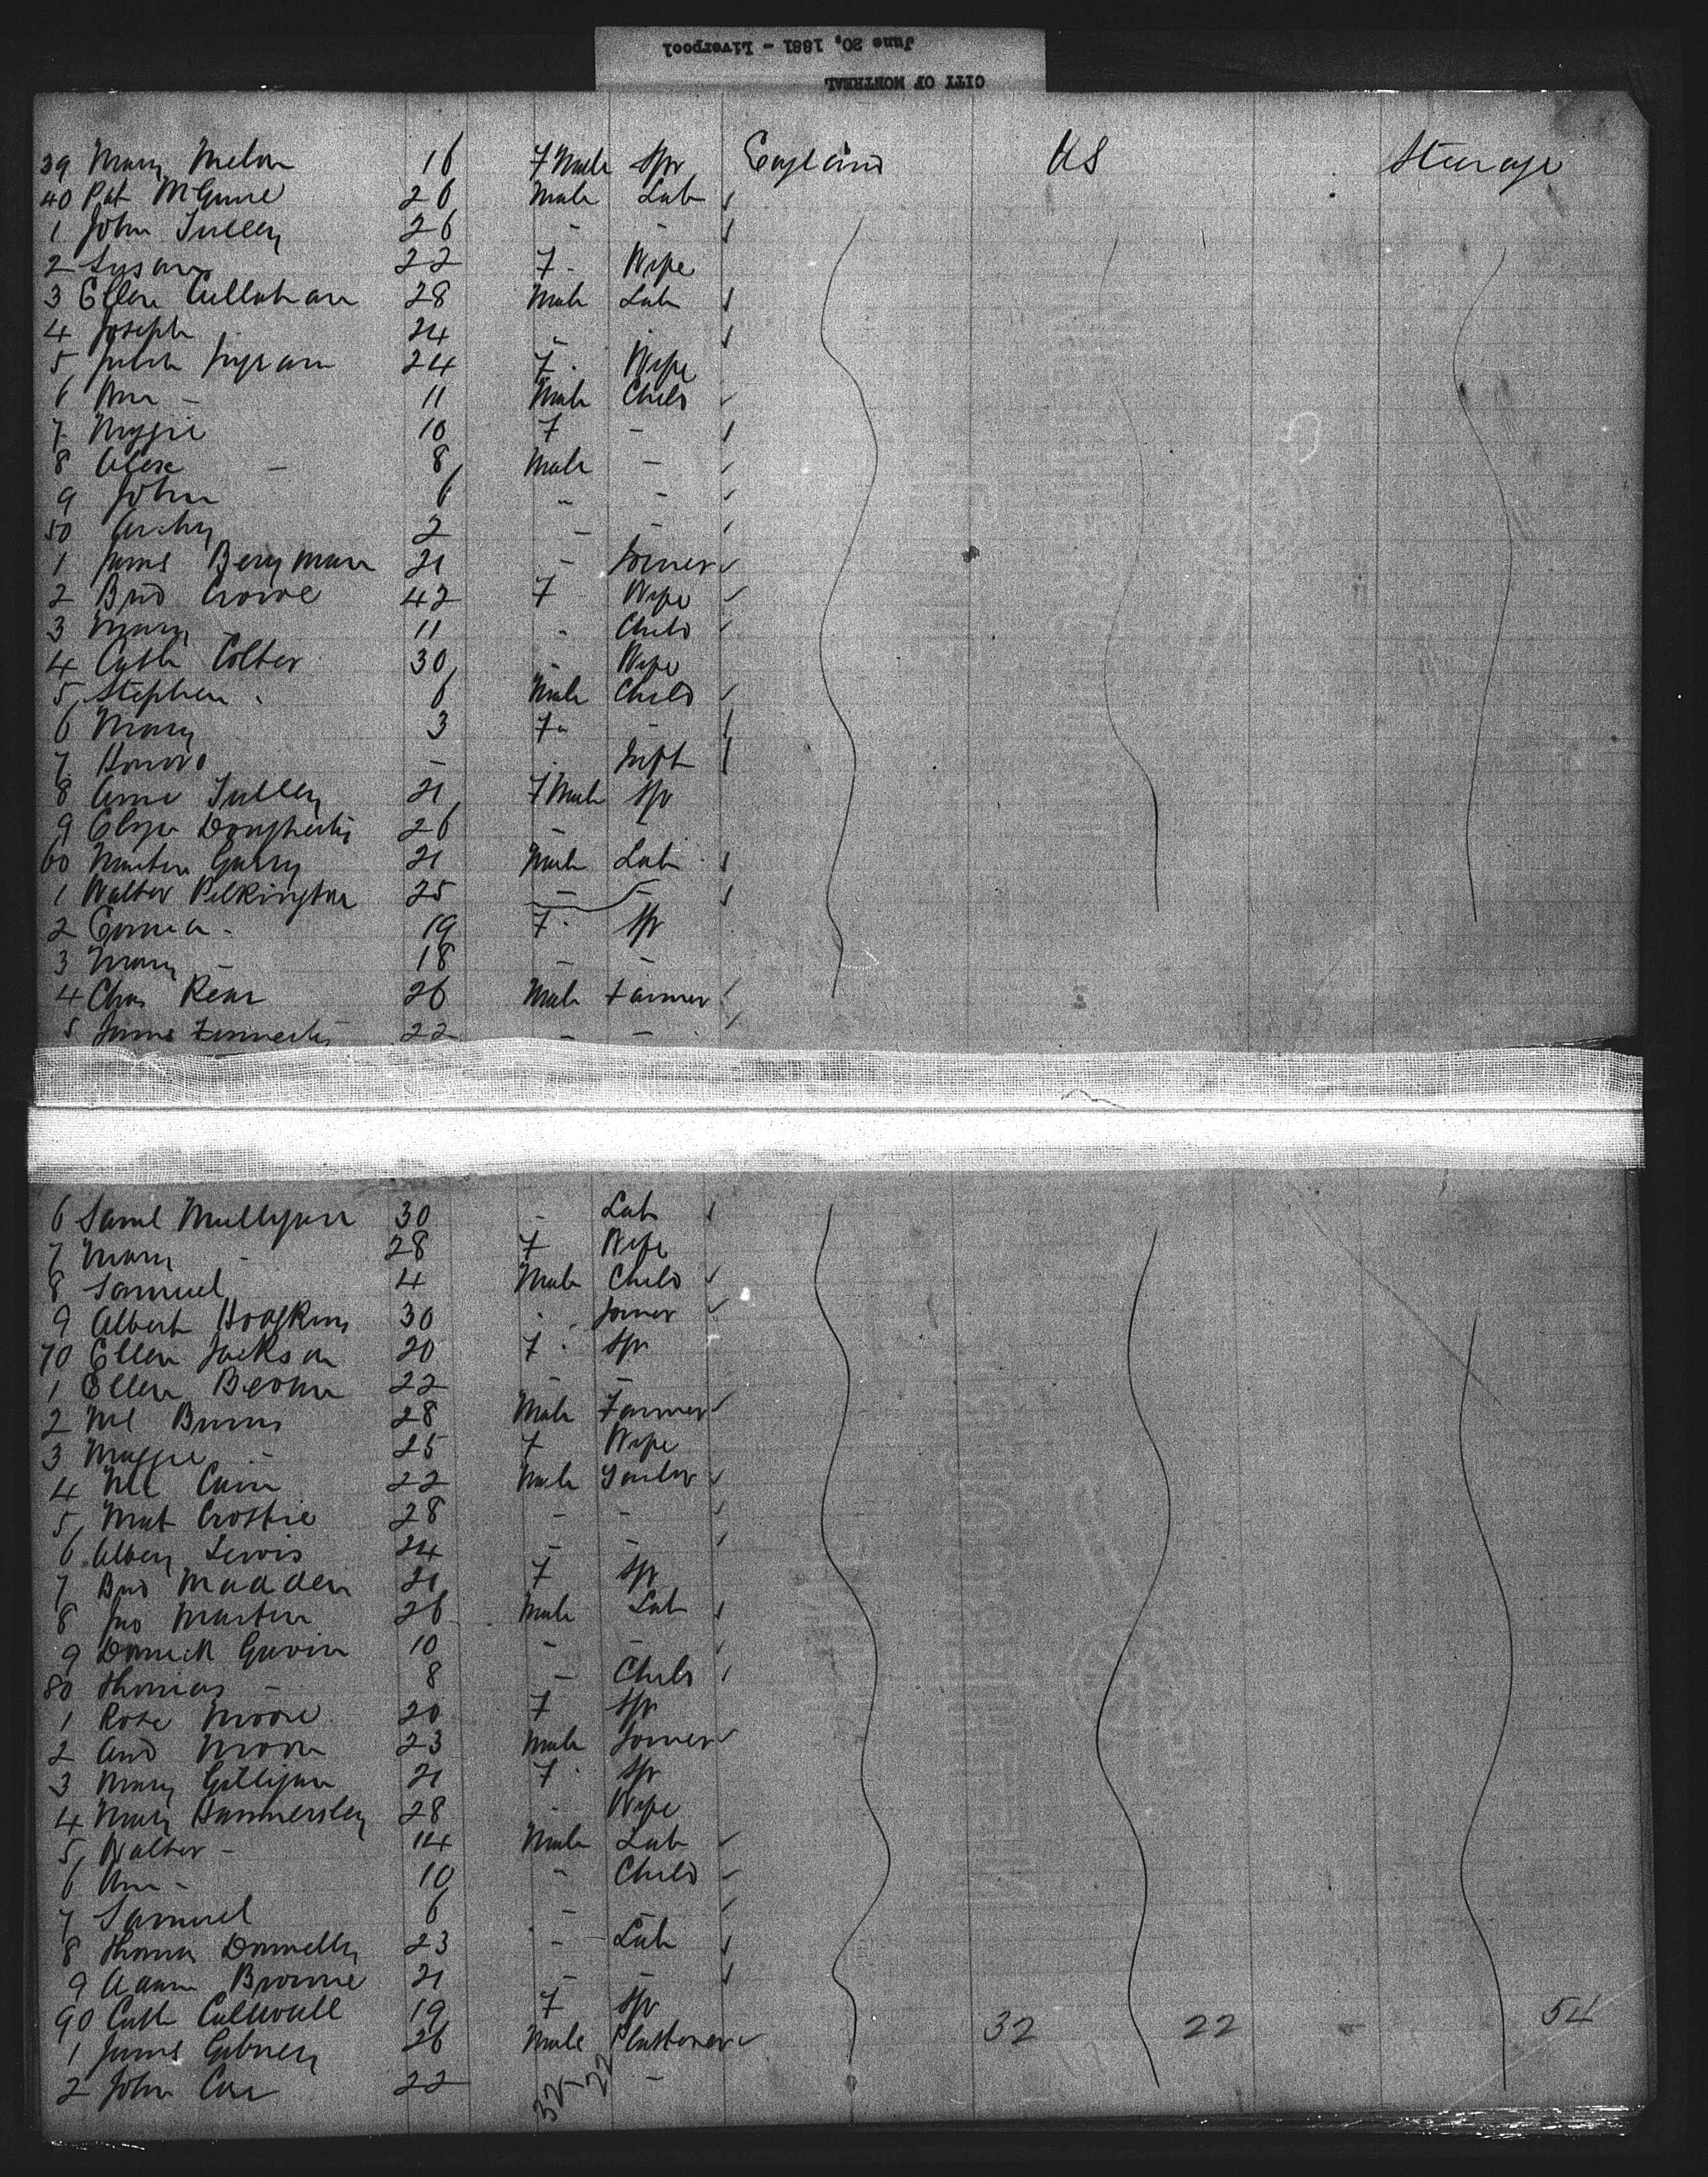 CITY OF MONTREAL
June 20, 1881 - Liverpool
39 Mary 16 F Male Spr England US Steerage
40 Pat McGuire 26 Male Lab
1 John Tulley 26 - -
2 Susan 22 F - Wife
3 Ellen Cullahan 28 Male Lab
4 Joseph 24 -
5 24 F. Wife
6 - 11 Male Child
7 Maggie 10 F -
8 Alex - 8 Male -
9 John 6 - -
50 Archy 2 - -
1 James Berryman 21 - Joiner
2 Brid Crowe 42 F Wife
3 Mary - 11 - Child
4 Cath Colter 30 - Wife
5 Stephen 6 Male Child
6 Mary 3 F - -
7 Honora - Inft
8 Anne Tulley 21 F Male Spr
9 Eliza Dougherty 26 -
60 Martin Garry 21 Male Lab
1 Walter Pilkington 25 - -
2 Emma - 19 F. Spr
3 Mary - 18 - -
4 Chas Kear 26 Male Farmer
5 James Finnerty 22 - -
6 Saml Mulligan 30 - Lab
7 Mary - 28 F Wife
8 Samuel 4 Male Child
9 Albert Hodgkins 30 - Joiner
70 Ellen Jackson 20 F. Spr
1 Ellen 22 - -
2 Ml Burns 28 Male Farmer
3 Maggie - 25 F Wife
4 Ml 22 Male Tailor
5 Mat Crosbie 28 - -
6 Lewis 24 - -
7 Brid Madden 21 F Spr
8 Jno Martin 26 Male Lab
9 Dominick Gavin 10 - -
80 Thomas - 8 - Child
1 Rose Moore 20 F Spr
2 And Moore 23 Male Joiner
3 Mary Gilligan 21 F. Spr
4 Mary Hammersley 28 - Wife
5 Walter - 14 Male Lab
6 - 10 - Child
7 Samuel 6 - -
8 Thomas Donnelly 23 - Lab
9 Adam Browne 21 - -
90 Cath 19 F Spr 32 22 - 54
1 James Gibney 26 Male Plasterer
2 John 22 -
32 - 22